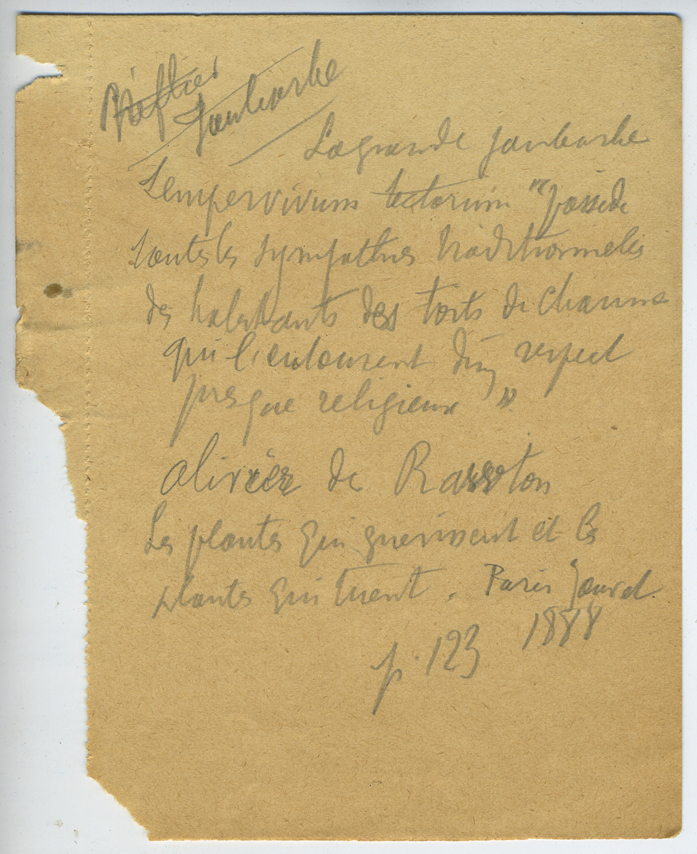 Joubarbe
La grande joubarbe
Sempervivum tectorum "possède
toutes les sympathies traditionnelles
des habitants des toits de chaume
qui l'entourent d'un respect
presque religieux "
Olivier de Rawton
Les plantes qui guérissent et les
plantes qui tuent. Paris Jouvet.
1888
p. 123